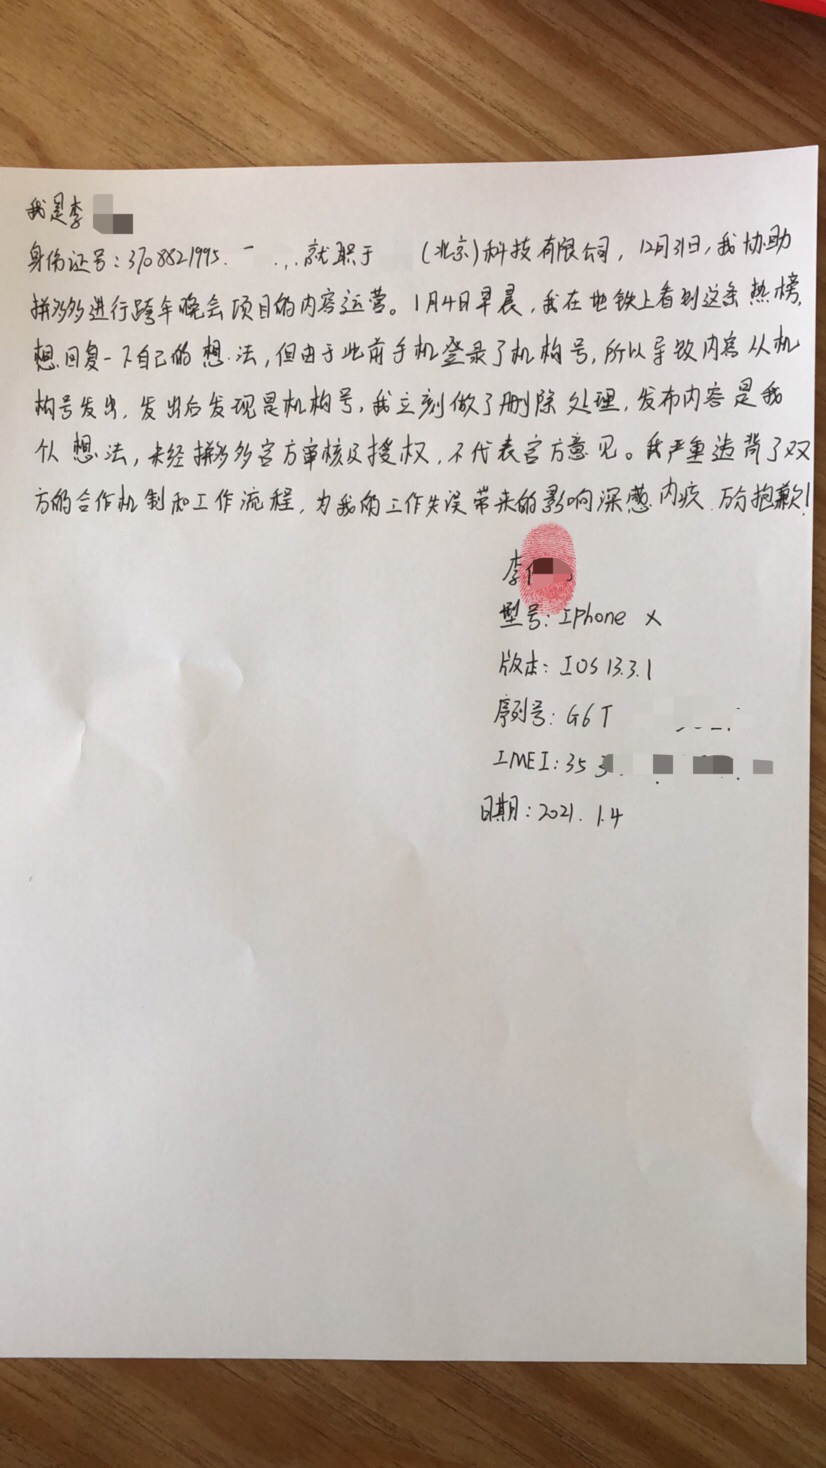 我是李
身份证号:3708821995. 就职于 (北京)科技有限公司, 12月31日,我协助
拼多多进行跨年晚会项目的内容运营。1月4日早晨,我在地铁上看到这条热榜,
想回复一下自己的想法,但由于此前手机登录了机构号,所以导致内容从机
构号发出,发出后发现是机构号,我立刻做了删除处理,发布内容是我
个人想法,未经拼多多官方审核及授权,不代表官方意见。我严重违背了双
方的合作机制和工作流程,为我的工作失误带来的影响深感内疚.万分抱歉!
李
型号: IPhone X
版本: IOS 13.3.1
序列号: G6T
IMEI: 353
日期: 2021. 1.4